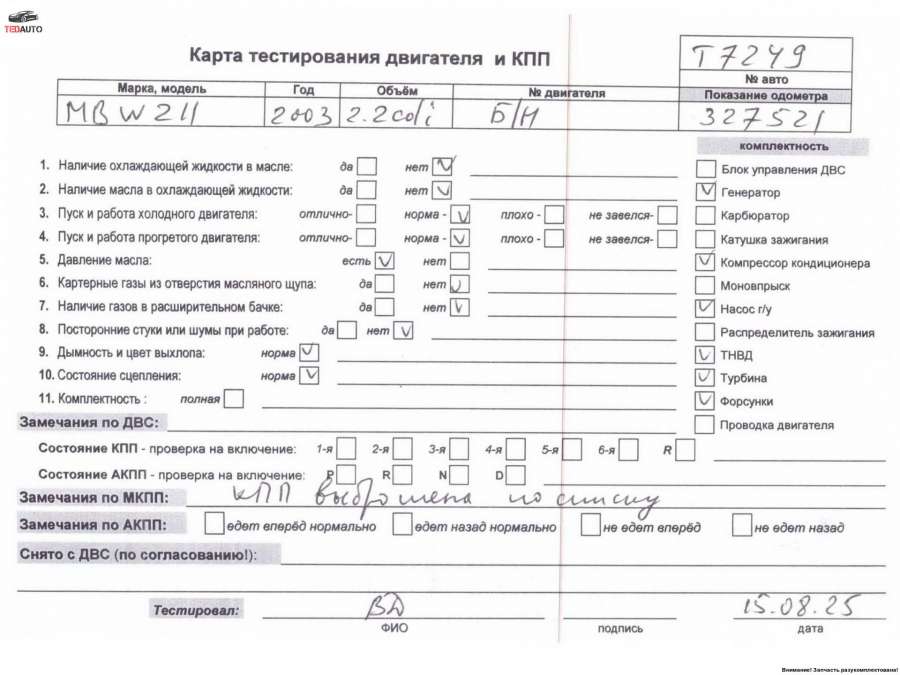 TEDAUTO
Карта тестирования двигателя и КПП
T7249
№ авто
Марка, модель Год Объём № двигателя Показание одометра
MB W211 2003 2.2cdi Б/Н 327521
комплектность
1. Наличие охлаждающей жидкости в масле: да нет
Блок управления ДВС
2. Наличие масла в охлаждающей жидкости: да нет
Генератор
3. Пуск и работа холодного двигателя: отлично- норма - плохо - не завелся-
Карбюратор
4. Пуск и работа прогретого двигателя: отлично- норма - плохо - не завелся-
Катушка зажигания
5. Давление масла: есть нет
Компрессор кондиционера
6. Картерные газы из отверстия масляного щупа: да нет
Моновпрыск
7. Наличие газов в расширительном бачке: да нет
Насос г/у
8. Посторонние стуки или шумы при работе: да нет
Распределитель зажигания
9. Дымность и цвет выхлопа: норма
ТНВД
10. Состояние сцепления: норма
Турбина
11. Комплектность : полная
Форсунки
Замечания по ДВС:
Проводка двигателя
Состояние КПП - проверка на включение: 1-я 2-я 3-я 4-я 5-я 6-я R
Состояние АКПП - проверка на включение: P R N D
Замечания по МКПП: КПП выброшена по списку
Замечания по АКПП: едет вперёд нормально едет назад нормально не едет вперёд не едет назад
Снято с ДВС (по согласованию!):
Тестировал: ВД 15.08.25
ФИО подпись дата
Внимание! Запчасть разукомплектована!